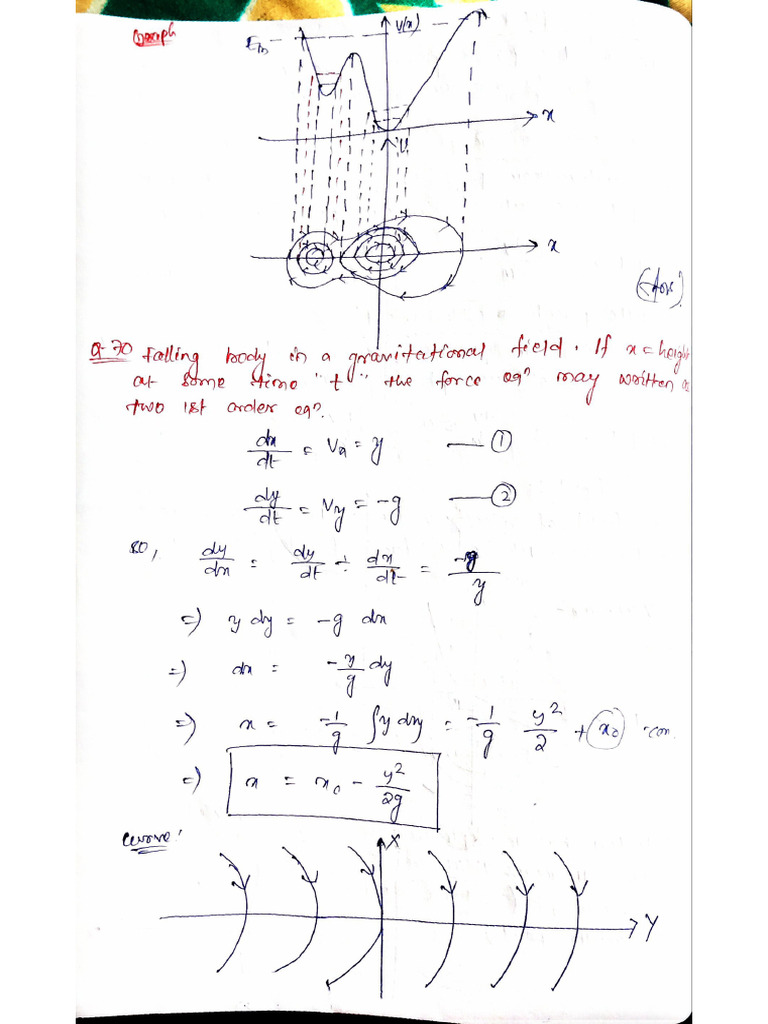 Graph
E₁₀ V(x)
x
v
x
(Ans)
Q-70 Falling body in a gravitational field. If x = height
at some time "t" the force eqⁿ may written as
two 1st order eqⁿ.
dx/dt = Vx = y —— ①
dy/dt = Vy = -g —— ②
so, dy/dx = dy/dt ÷ dx/dt = -g/y
⇒ y dy = -g dx
⇒ dx = -y/g dy
⇒ x = -1/g ∫y dy = -1/g y²/2 + x₀ con
⇒ x = x₀ - y²/2g
curve:
X
Y